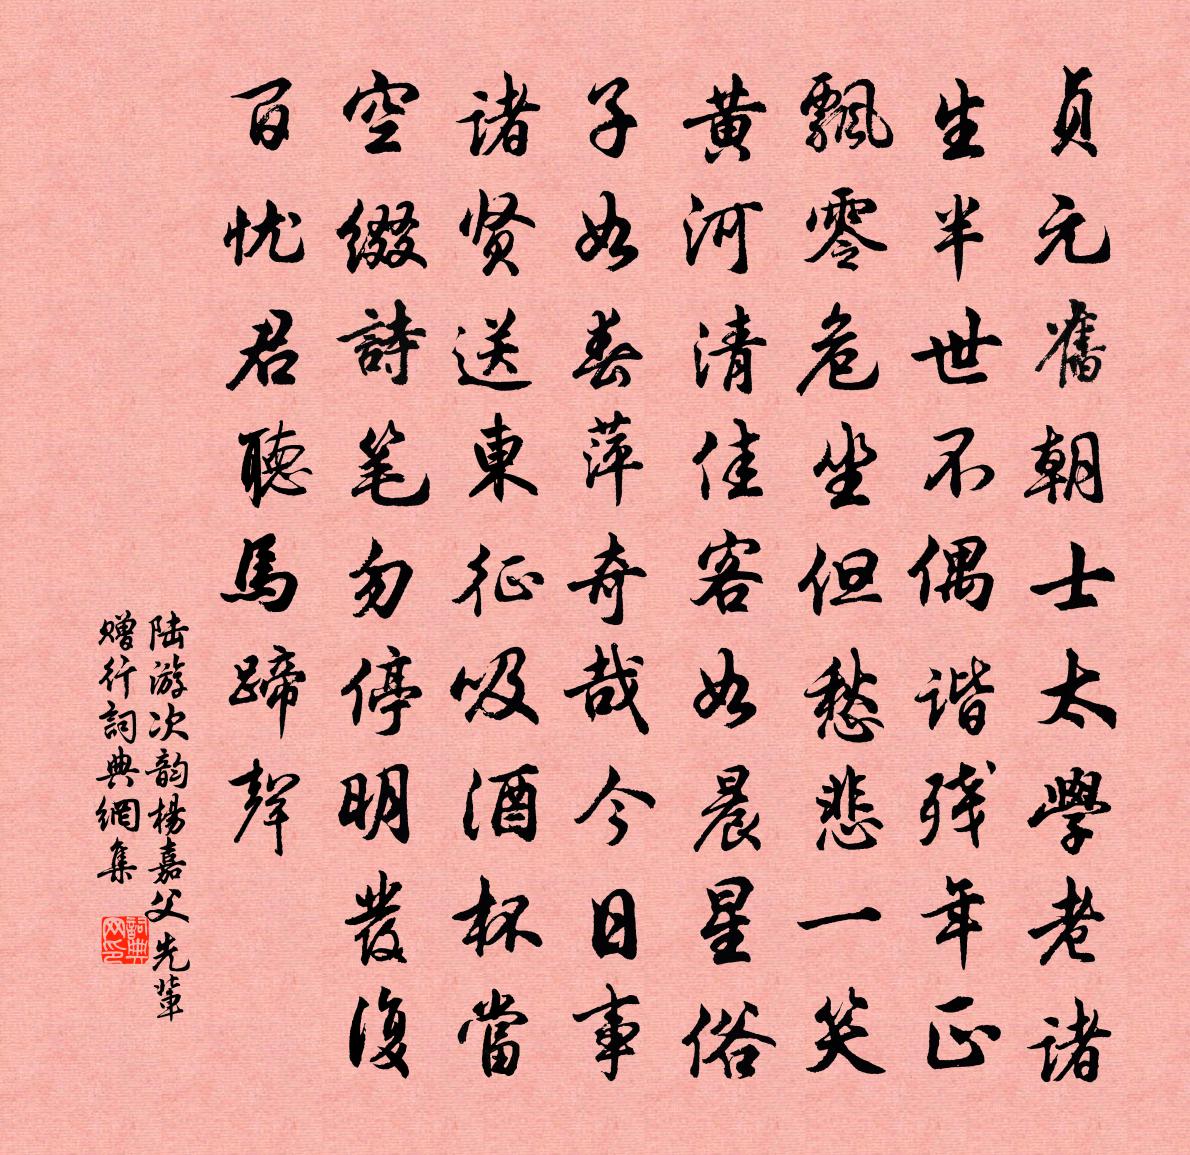 贞元舊朝士太學老诸
生半世不偶谐残年正
飄零危坐但愁悲一笑
黄河清佳客如晨星俗
子如春萍奇哉今日事
诸贤送東征吸酒杯當
空缀詩笔勿停明發復
百忧君聽馬蹄聲
陆游次韵楊嘉父先輩
赠行詞典網集
詞典网印